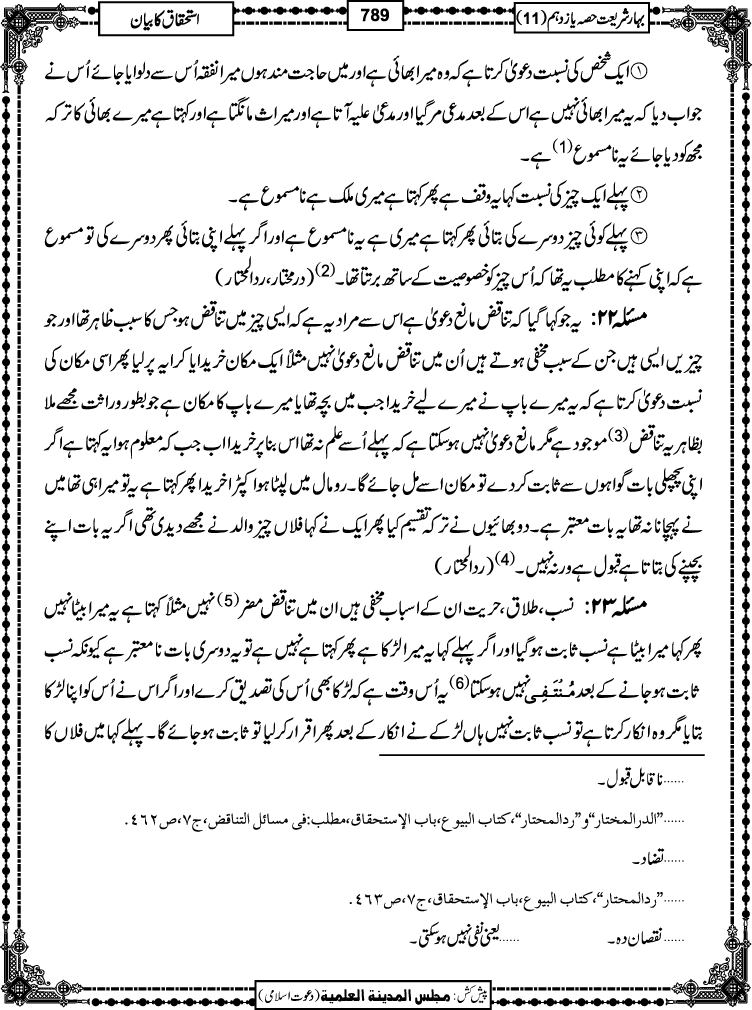 بہارِ شریعت حصہ یازدہم (11)
789
استحقاق کا بیان
① ایک شخص کی نسبت دعویٰ کرتا ہے کہ وہ میرا بھائی ہے اور میں حاجت مند ہوں میرا نفقہ اُس سے دلوایا جائے اُس نے
جواب دیا کہ یہ میرا بھائی نہیں ہے اس کے بعد مدعی مر گیا اور مدعیٰ علیہ آتا ہے اور میراث مانگتا ہے اور کہتا ہے میرے بھائی کا ترکہ
مجھ کو دیا جائے یہ نامسموع (1) ہے۔
② پہلے ایک چیز کی نسبت کہا یہ وقف ہے پھر کہتا ہے میری ملک ہے نامسموع ہے۔
③ پہلے کوئی چیز دوسرے کی بتائی پھر کہتا ہے میری ہے یہ نامسموع ہے اور اگر پہلے اپنی بتائی پھر دوسرے کی تو مسموع
ہے کہ اپنی کہنے کا مطلب یہ تھا کہ اُس چیز کو خصوصیت کے ساتھ برتتا تھا۔ (2) (درمختار، ردالمحتار)
مسئلہ ۲۲: یہ جو کہا گیا کہ تناقض مانع دعویٰ ہے اس سے مراد یہ ہے کہ ایسی چیز میں تناقض ہو جس کا سبب ظاہر تھا اور جو
چیزیں ایسی ہیں جن کے سبب مخفی ہوتے ہیں اُن میں تناقض مانع دعویٰ نہیں مثلاً ایک مکان خریدا یا کرایہ پر لیا پھر اسی مکان کی
نسبت دعویٰ کرتا ہے کہ یہ میرے باپ نے میرے لیے خریدا جب میں بچہ تھا یا میرے باپ کا مکان ہے جو بطور وراثت مجھے ملا
بظاہر یہ تناقض (3) موجود ہے مگر مانع دعویٰ نہیں ہو سکتا ہے کہ پہلے اُسے علم نہ تھا اس بنا پر خریدا اب جب کہ معلوم ہوا یہ کہتا ہے اگر
اپنی پچھلی بات گواہوں سے ثابت کر دے تو مکان اسے مل جائے گا۔ رومال میں لپٹا ہوا کپڑا خریدا پھر کہتا ہے یہ تو میرا ہی تھا میں
نے پہچانا نہ تھا یہ بات معتبر ہے۔ دو بھائیوں نے ترکہ تقسیم کیا پھر ایک نے کہا فلاں چیز والد نے مجھے دیدی تھی اگر یہ بات اپنے
بچپنے کی بتاتا ہے قبول ہے ورنہ نہیں۔ (4) (ردالمحتار)
مسئلہ ۲۳: نسب، طلاق، حریت ان کے اسباب مخفی ہیں ان میں تناقض مضر (5) نہیں مثلاً کہتا ہے یہ میرا بیٹا نہیں
پھر کہا میرا بیٹا ہے نسب ثابت ہو گیا اور اگر پہلے کہا یہ میرا لڑکا ہے پھر کہتا ہے نہیں ہے تو یہ دوسری بات نامعتبر ہے کیونکہ نسب
ثابت ہو جانے کے بعد مُنْتَفِی نہیں ہو سکتا (6) یہ اُس وقت ہے کہ لڑکا بھی اُس کی تصدیق کرے اور اگر اس نے اُس کو اپنا لڑکا
بتایا مگر وہ انکار کرتا ہے تو نسب ثابت نہیں ہاں لڑکے نے انکار کے بعد پھر اقرار کر لیا تو ثابت ہو جائے گا۔ پہلے کہا میں فلاں کا
......ناقابل قبول۔
......"الدرالمختار"و"ردالمحتار"، کتاب البیوع، باب الإستحقاق، مطلب: فی مسائل التناقض، ج۷، ص۴۶۲.
......تضاد۔
......"ردالمحتار"، کتاب البیوع، باب الإستحقاق، ج۷، ص۴۶۳.
......نقصان دہ۔ ......یعنی نفی نہیں ہو سکتی۔
پیش کش: مجلس المدینۃ العلمیۃ (دعوت اسلامی)